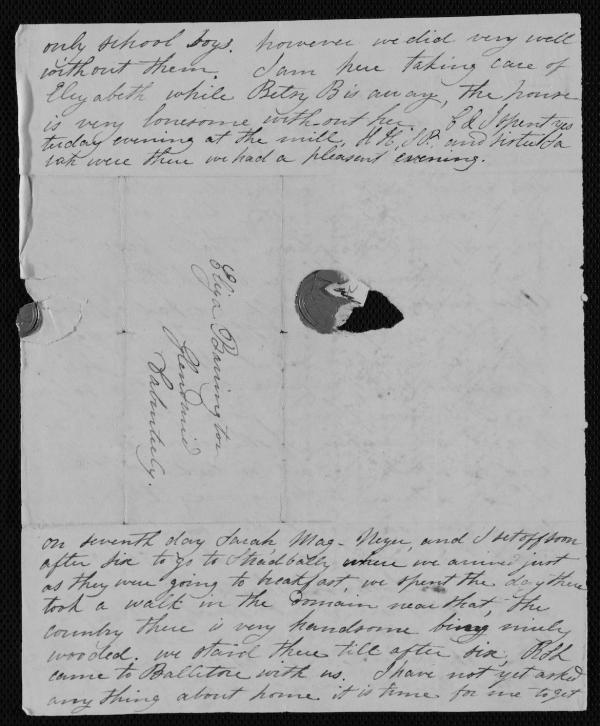 only school boys. however we did very well
without them. I am here taking care of
Elizabeth while Betsy B is away, the house
is very lonesome without her. E & I spent yes
terday evening at the mill, and sister Sa
rah were there we had a pleasant evening.
Eliza Barrington
Glendruid
on seventh day Sarah, Mag- and I set off soon
after six to go to Stradbally where we arrived just
as they were going to breakfast, we spent the day there
took a walk in the Domain near that, the
country there is very handsome being nicely
wooded. we staid there till after six,
came to Ballitore with us. I have not yet asked
any thing about home it is time for me to get